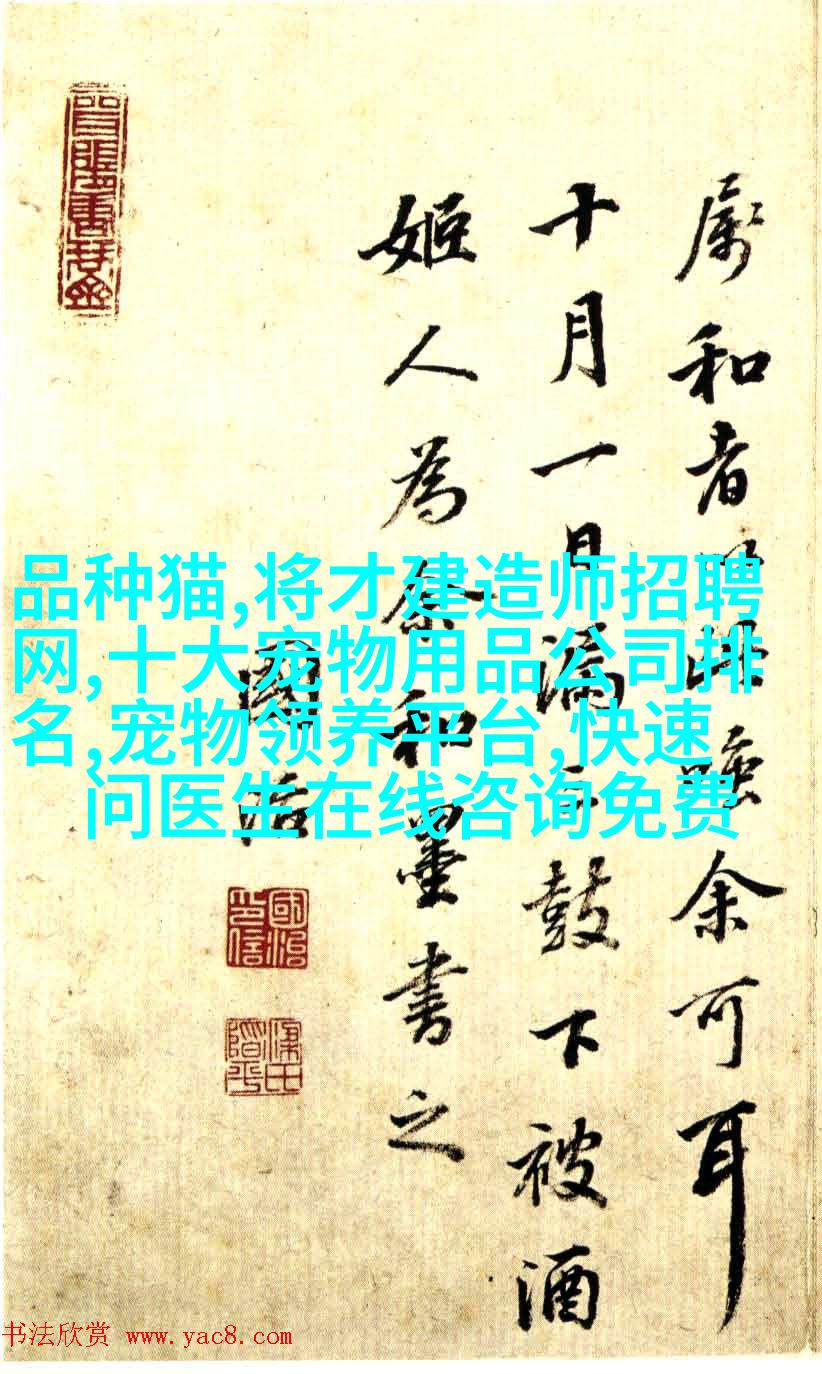 属和者此余可耳
十月一日漏鼓下被酒
姬人為余和墨書之
國治
品种猫,将才建造师招聘
网,十大宠物用品公司排
名,宠物领养平台,快速
问医生在线咨询免费
國治印信
书法欣赏 www.yac8.com